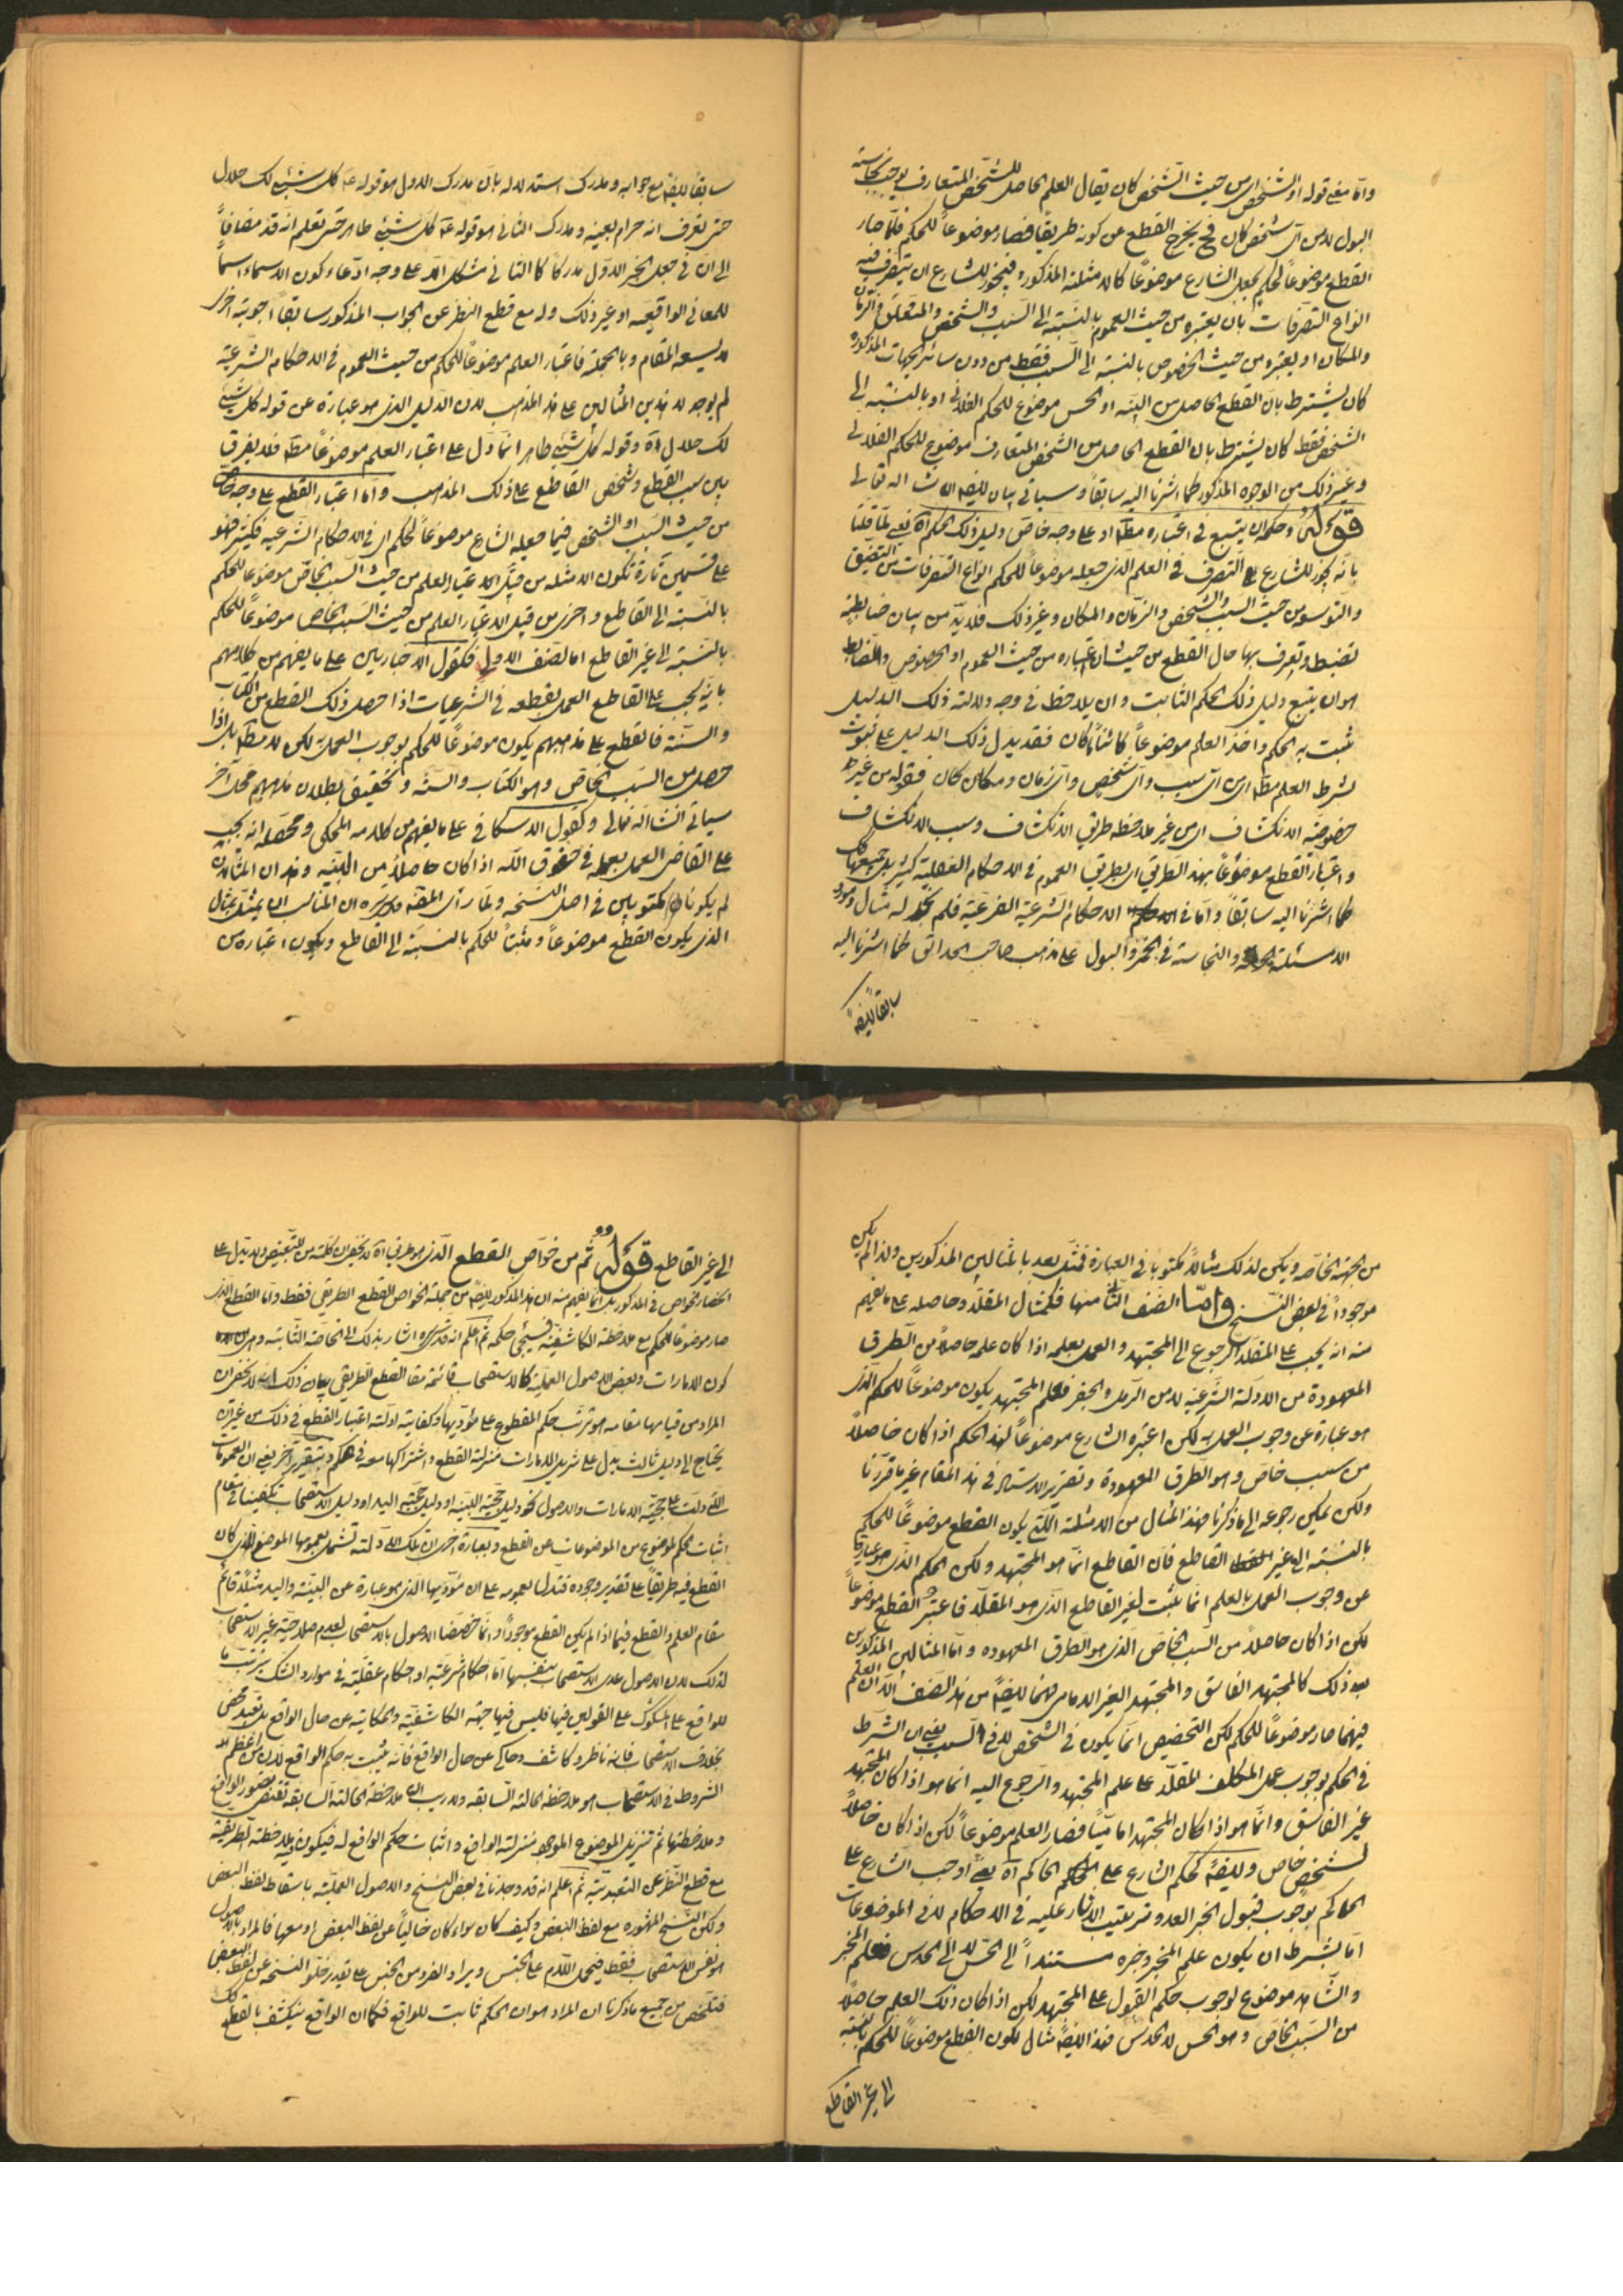 وامّا معنى قوله او الشخص اى من حيث الشخص كان يقال العلم الحاصل للشخص المتعارف يوجب نجاسته
البول لا من اىّ شخص كان فح يخرج القطع عن كونه طريقياً فصار موضوعاً للحكم فلمّا صار
القطع موضوعاً لحكم بجعل الشارع موضوعاً كالامثلة المذكورة فيجوز للشارع ان يتصرف فيه
انواع التصرفات بان يعتبره من حيث العموم بالنسبة الى السبب والشخص والمتعلق والزمان
والمكان او يعتبره من حيث الخصوص بالنسبة الى السبب فقط من دون سائر الجهات المذكورة
كان يشترط بان القطع الحاصل من البينه او الحس موضوع للحكم الفلانى او بالنسبة الى
الشخص فقط كان يشترط بان القطع الحاصل من الشخص المتعارف موضوع للحكم الفلانى
وغير ذلك من الوجوه المذكورة كما اشرنا اليه سابقاً وسياتى بيان ايضاً انشاء اله تعالى
قوله وحكمه ان يتبع فى اعتباره مطلقا او على وجه خاص دليل ذلك الحكم آه يعنى لمّا قلنا
بانه يجوز للشارع التصرف فى العلم الذى جعله موضوعاً للحكم انواع التصرفات من التضيق
والتوسع من حيث السبب والشخص والزمان والمكان وغير ذلك فلابدّ من بيان ضابطة
تضبط وتعرف بها حال القطع من حيث ان اعتباره من حيث العموم او الخصوص والضابط
هو ان يتبع دليل ذلك الحكم الثابت وان يلاحظ فى وجه دلالته ذلك الدليل
يثبت به الحكم واخذ العلم موضوعاً كائناً ما كان فقد يدل ذلك الدليل على ثبوت
بشرط العلم مطلقا اى من اىّ سبب واىّ شخص واىّ زمان ومكان كان فقوله من غير
خصوصية الانكشاف اى من غير ملاحظة طريق الانكشاف وسبب الانكشاف
واعتبار القطع موضوعاً بهذا الطريق اى بطريق العموم فى الاحكام العقلية كثيرة بل جميعها كك
كما اشرنا اليه سابقاً وامّا فى الاحكام الشرعية الفرعية فلم يجد له مثال
الا مسئلة والنجاسة فى الخمر والبول على مذهب صاحب الحدائق كما اشرنا اليه
سابقاً ايضاً
سابقاً ايضاً مع جوابه ومدرك استدلاله بان مدرك الاول هو قوله ع كل شيئ لك حلال
حتى تعرف انه حرام بعينه ومدرك الثانى هو قوله ع كل شيئ طاهر حتى تعلم انه قذر مضافاً
الى ان فى جعل الخبر الاول مدركاً كالثانى مشكل الا على وجه ادّعاء كون الاسماء اسماً
للمعانى الواقعيه او غير ذلك وله مع قطع النظر عن الجواب المذكور سابقاً اجوبة اخر
لا يسعه المقام وبالجملة فاعتبار العلم موضوعاً للحكم من حيث العموم فى الاحكام الشرعية
لم يوجد الا هذين المثالين على هذا المذهب لان الدليل الذى هو عبارة عن قوله كل شيئ
لك حلال آه وقوله كل شيئ طاهر انما دلّ على اعتبار العلم موضوعاً مطلقا فلا يفرق
بين سبب القطع وشخص القاطع على ذلك المذهب وامّا اعتبار القطع على وجه خاص
من حيث السبب او الشخص فيما جعله الشارع موضوعاً لحكم اى فى الاحكام الشرعيه فكثير فهو
على قسمين تارة تكون الامثله من قبيل اعتبار العلم من حيث السبب الخاص موضوعاً للحكم
بالنسبة الى القاطع واخرى من قبيل اعتبار العلم من حيث السبب الخاص موضوعاً للحكم
بالنسبة الى غير القاطع اما الصنف الاول فكقول الاخباريين على ما يفهم من كلامهم
بانه يجب على القاطع العمل بقطعه فى الشرعيات اذا حصل ذلك القطع من الكتاب
والسنة فالقطع على مذهبهم يكون موضوعاً للحكم بوجوب العمل به لكن لا مطلقا بل اذا
حصل من السبب الخاص وهو الكتاب والسنة وتحقيق بطلان مذهبهم محل آخر
سياتى انشاء اله تعالى وكقول الاسكافى على ما يفهم من كلامه المحكى ومحصله انه يجب
على القاضى العمل بعلمه فى حقوق الله اذا كان حاصلاً من البينه وهذان المثالان
لم يكونا مكتوبين فى اصل النسخه ولمّا رأى المصنف ان المناسب ان يمثل بمثال
الذى يكون القطع موضوعاً ومثبتاً للحكم بالنسبة الى القاطع ويكون اعتباره من
من الجهة الخاصه ويكن لذلك مثالاً مكتوبا فى العبارة فمثل بعد بالمثالين المذكورين ولذا لم يكن
موجوداً فى بعض النسخ وامّا الصنف الثانى منها فكمثال المقلد وحاصله على ما يفهم
منه انه يجب على المقلد الرجوع الى المجتهد والعمل بعلمه اذا كان علمه حاصلاً من الطرق
المعهودة من الادلة الشرعية لا من الرمل والجفر فعلم المجتهد يكون موضوعاً للحكم الذى
هو عبارة عن وجوب العمل به لكن اعتبره الشارع موضوعاً لهذا الحكم اذا كان حاصلاً
من سبب خاص وهو الطرق المعهودة وتقرير الاستاد فى هذا المقام غير ما قررنا
ولكن يمكن رجوعه الى ما ذكرنا فهذا المثال من الامثلة التى يكون القطع موضوعاً للحكم
بالنسبة الى غير القاطع فان القاطع انما هو المجتهد ولكن الحكم الذى هو عبارة
عن وجوب العمل بالعلم انما يثبت لغير القاطع الذى هو المقلد فاعتبر القطع موضوعاً
لكن اذا كان حاصلاً من السبب الخاص الذى هو الطرق المعهوده وامّا المثالين المذكورين
بعد ذلك كالمجتهد الفاسق والمجتهد الغير الامامى فهما ايضاً من هذا الصنف الا ان العلم
فيهما صار موضوعاً للحكم لكن التخصيص انما يكون فى الشخص لا فى السبب يعنى ان الشرط
فى الحكم بوجوب عمل المكلف المقلد على علم المجتهد والرجوع اليه انما هو اذا كان المجتهد
غير الفاسق وانما هو اذا كان المجتهد اماميّاً فصار العلم موضوعاً لكن اذا كان حاصلاً
لشخص خاص وايضاً كحكم الشارع على الحاكم آه يعنى اوجب الشارع على
الحاكم بوجوب قبول الخبر العدل وترتيب الاثار عليه فى الاحكام لا فى الموضوعات
امّا بشرط ان يكون علم المخبر وخبره مستنداً الى الحس لا الى الحدس فعلم المخبر
والشاهد موضوع لوجوب حكم القبول على المجتهد لكن اذا كان ذلك العلم حاصلاً
من السبب الخاص وهو الحس لا الحدس فهذا ايضاً مثال لكون القطع موضوعاً للحكم بالنسبة
الى غير القاطع
الى غير القاطع قوله ثم من خواص القطع الذى هو طريق آه لا يخفى ان كلمة من للتبعيض ولا تدل على
انحصار الخواص فى المذكور بل انما يفهم منه ان هذا المذكور ايضاً من جملة الخواص للقطع الطريقى فقط وامّا القطع الذى
صار موضوعاً للحكم مع ملاحظة الكاشفية فسيجئ حكمه ثم اعلم انه قدس سره اشار بذلك الى الخاصة الثانية وهى
كون الامارات وبعض الاصول العملية كالاستصحاب قائمة مقام القطع الطريقى بيان ذلك انه لا يخفى ان
المراد من قيامها مقامه هو ترتب حكم المقطوع على مؤدّيها وكفاية ادلّة اعتبار القطع فى ذلك من غير ان
يحتاج الى دليل ثالث يدل على تنزيل الامارات منزلة القطع واشتراكها معه فى الحكم وبتقرير آخر يعنى ان العمومات
التى دلّت على حجية الامارات والاصول نحو دليل حجية البينه او دليل حجية اليد او دليل الاستصحاب تكفينا فى مقام
اثبات الحكم لموضوع من الموضوعات عن القطع وبعبارة اخرى ان تلك الادلة تشمل بعمومها الموضوع الذى كان
القطع فيه طريقاً على تقدير وجوده فتدل بعمومه على ان مؤدّيها الذى هو عبارة عن البينة واليد مثلاً قائم
مقام العلم والقطع فيما اذا لم يكن القطع موجوداً وانما خصصنا الاصول بالاستصحاب لعدم صلاحية غير الاستصحاب
لذلك لان الاصول عدى الاستصحاب بنفسها امّا احكام شرعية او احكام عقلية فى موارد الشك
للواقع على الشكوك على القولين فيها فليس فيها جهة الكاشفية والحكاية عن حال الواقع بل تعبد محض
بخلاف الاستصحاب فانه ناظر وكاشف وحاكى عن حال الواقع فانه يثبت به حكم الواقع لان من اعظم
الشروط فى الاستصحاب هو ملاحظة الحالة السابقه ولا ريب ان ملاحظة الحالة السابقه تقتضى تصور الواقع
وملاحظتها ثم تنزيل الموضوع الموجود منزلة الواقع واثبات حكم الواقع له فيكون فيه ملاحظة الطريقية
مع قطع النظر عن التعبدية ثم اعلم انه قد وجدنا فى بعض النسخ والاصول العملية باسقاط لفظ البعض
ولكن النسخ المشهوره مع لفظ البعض وكيف كان سواء كان خالياً عن لفظ البعض او معها فالمراد بالاصول
هو نفس الاستصحاب فقط فيحمل اللام على الجنس ويراد الفرد من الجنس على تقدير خلّو النسخه عن لفظ البعض
فتلخص من جميع ما ذكرنا ان المراد هو ان الحكم ثابت للواقع فكما ان الواقع ينكشف بالقطع كك